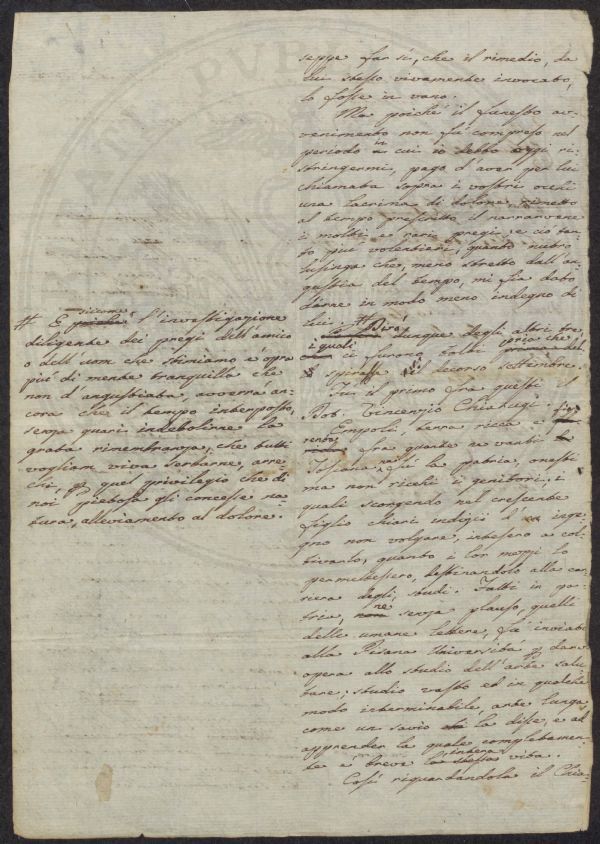 seppe far sì, che il rimedio, da
lui stesso vivamente invocato,
lo fosse in vano.
Ma poiché il funesto av-
venimento non fù compreso nel
periodo in cui io debbo oggi ri-
stringermi, pago d'aver per lui
chiamata sopra i vostri occhi
una lacrima di dolore, rimetto
al tempo prescritto il narrarvene
i molti e rari pregi; e ciò tan-
to più volentieri, quanto nutro
lusinga che, meno stretto dall'an-
gustia del tempo, mi sia dato
darne in modo meno indegno di
lui. #
Dirò dunque degli altri tre,
i quali ci furono tolti pria che
spirasse il decorso settembre.
Fù il primo fra questi il
Dot. Vincenzio Chiarugi.
Empoli, terra ricca e fio-
rente, fra quante ne vanti
Toscana, fù la patria, onesti
ma non ricchi i genitori, i
quali scorgendo nel crescente
figlio chiari indizii d' inge-
gno non volgare, intesero a col-
tivarlo, quanto i lor mezzi lo
permettessero, destinandolo alla car-
riera degli studi. Fatti in pa-
tria, ne senza plauso, quelli
delle umane lettere, fù inviato
alla Pisana Università p dare
opera allo studio dell'arte salu-
tare; studio vasto ed in qualche
modo interminabile, arte lunga,
come un savio la disse, e ad
apprender la quale completamen-
te è breve intera la stessa vita.
Così riguardandola il Chia-
# E siccome l'investigazione
diligente dei pregi dell'amico
o dell'uom che stimiamo è opra
più di mente tranquilla che
non d'angustiata, avverrà an-
cora che il tempo interposto,
senza quari indebolirne la
grata rimembranza, che tutti
vogliam viva serbarne, arre-
chi, p quel privilegio che di
noi pietosa gli concesse na-
tura, alleviamento al dolore.